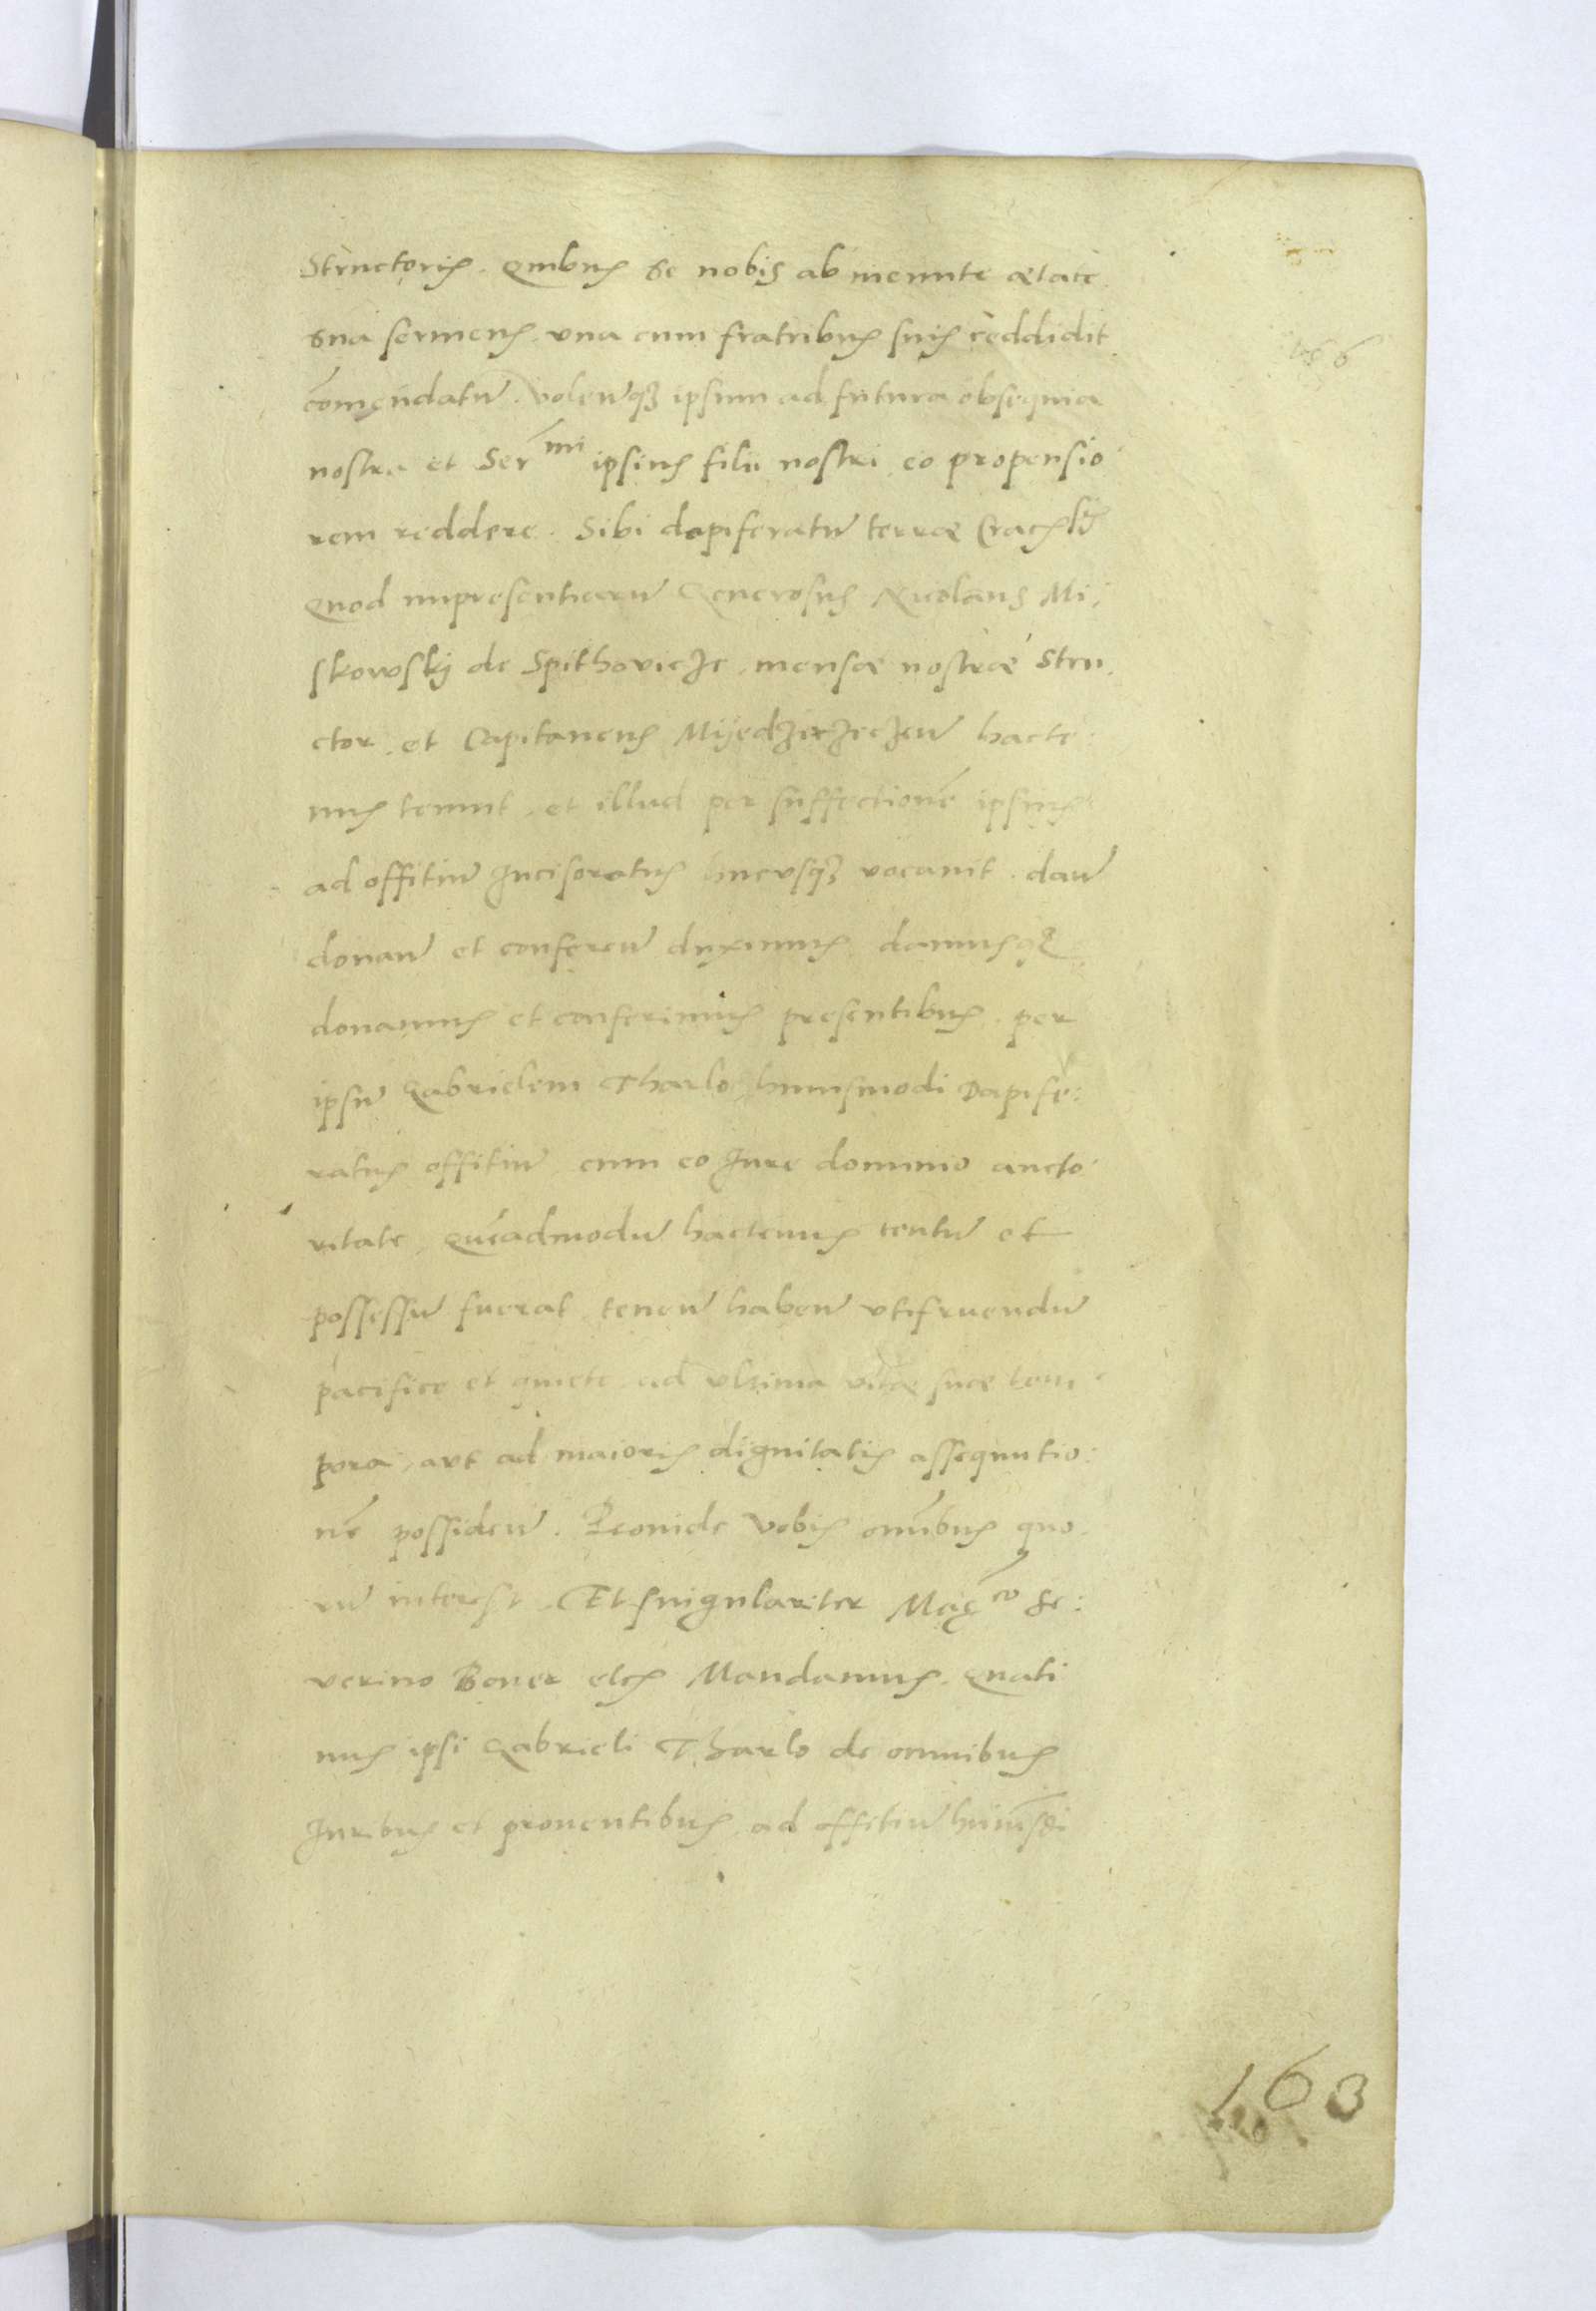 Structoris. Quibus se nobis ab ineunte aetate
sua serviens una cum fratribus suis reddidit
cōmendatū. volenᵗᵉsqꝫ ipsum ad futura obsequia
nostra et Serᵐⁱ ipsius filii nostri eo propensio
rem reddere. Sibi dapiferatū terrae Cracˢ
Quod impresentiarū Generosus Nicolaus Mi,
skowskÿ de Spithovicze, mensae nostrae Stru
ctor, et Capitaneus Mÿedzirzeczeñ hacte:
nus tenuit, et illud per suffectionē ipsius
ad offitiū Incisoratus hucusqꝫ vocavit. dañ
donañ et confereñ duximus damusqꝫ
donamus et conferimus presentibus. per
ipsū Gabrielem Tharlo, huiusmodi Dapife:
ratus offitiū, cum eo Iure dominio aucto
ritate, quēadmodū hactenus tentū et
possessū fuerat teneñ habeñ utifruendū
pacifice et quiete ad ultima vitae suae tem
pora, aut ad maioris dignitatis assequutio:
nē possideñ. Proinde Vobis omībus quo
rū interest. Et singulariter Magᶜᵒ Se:
verino Boner etcs Mandamus. Quati
nus ipsi Gabrieli Tharlo de omnibus
Iuribus et proventibus ad offitiū huiusm̄di
163